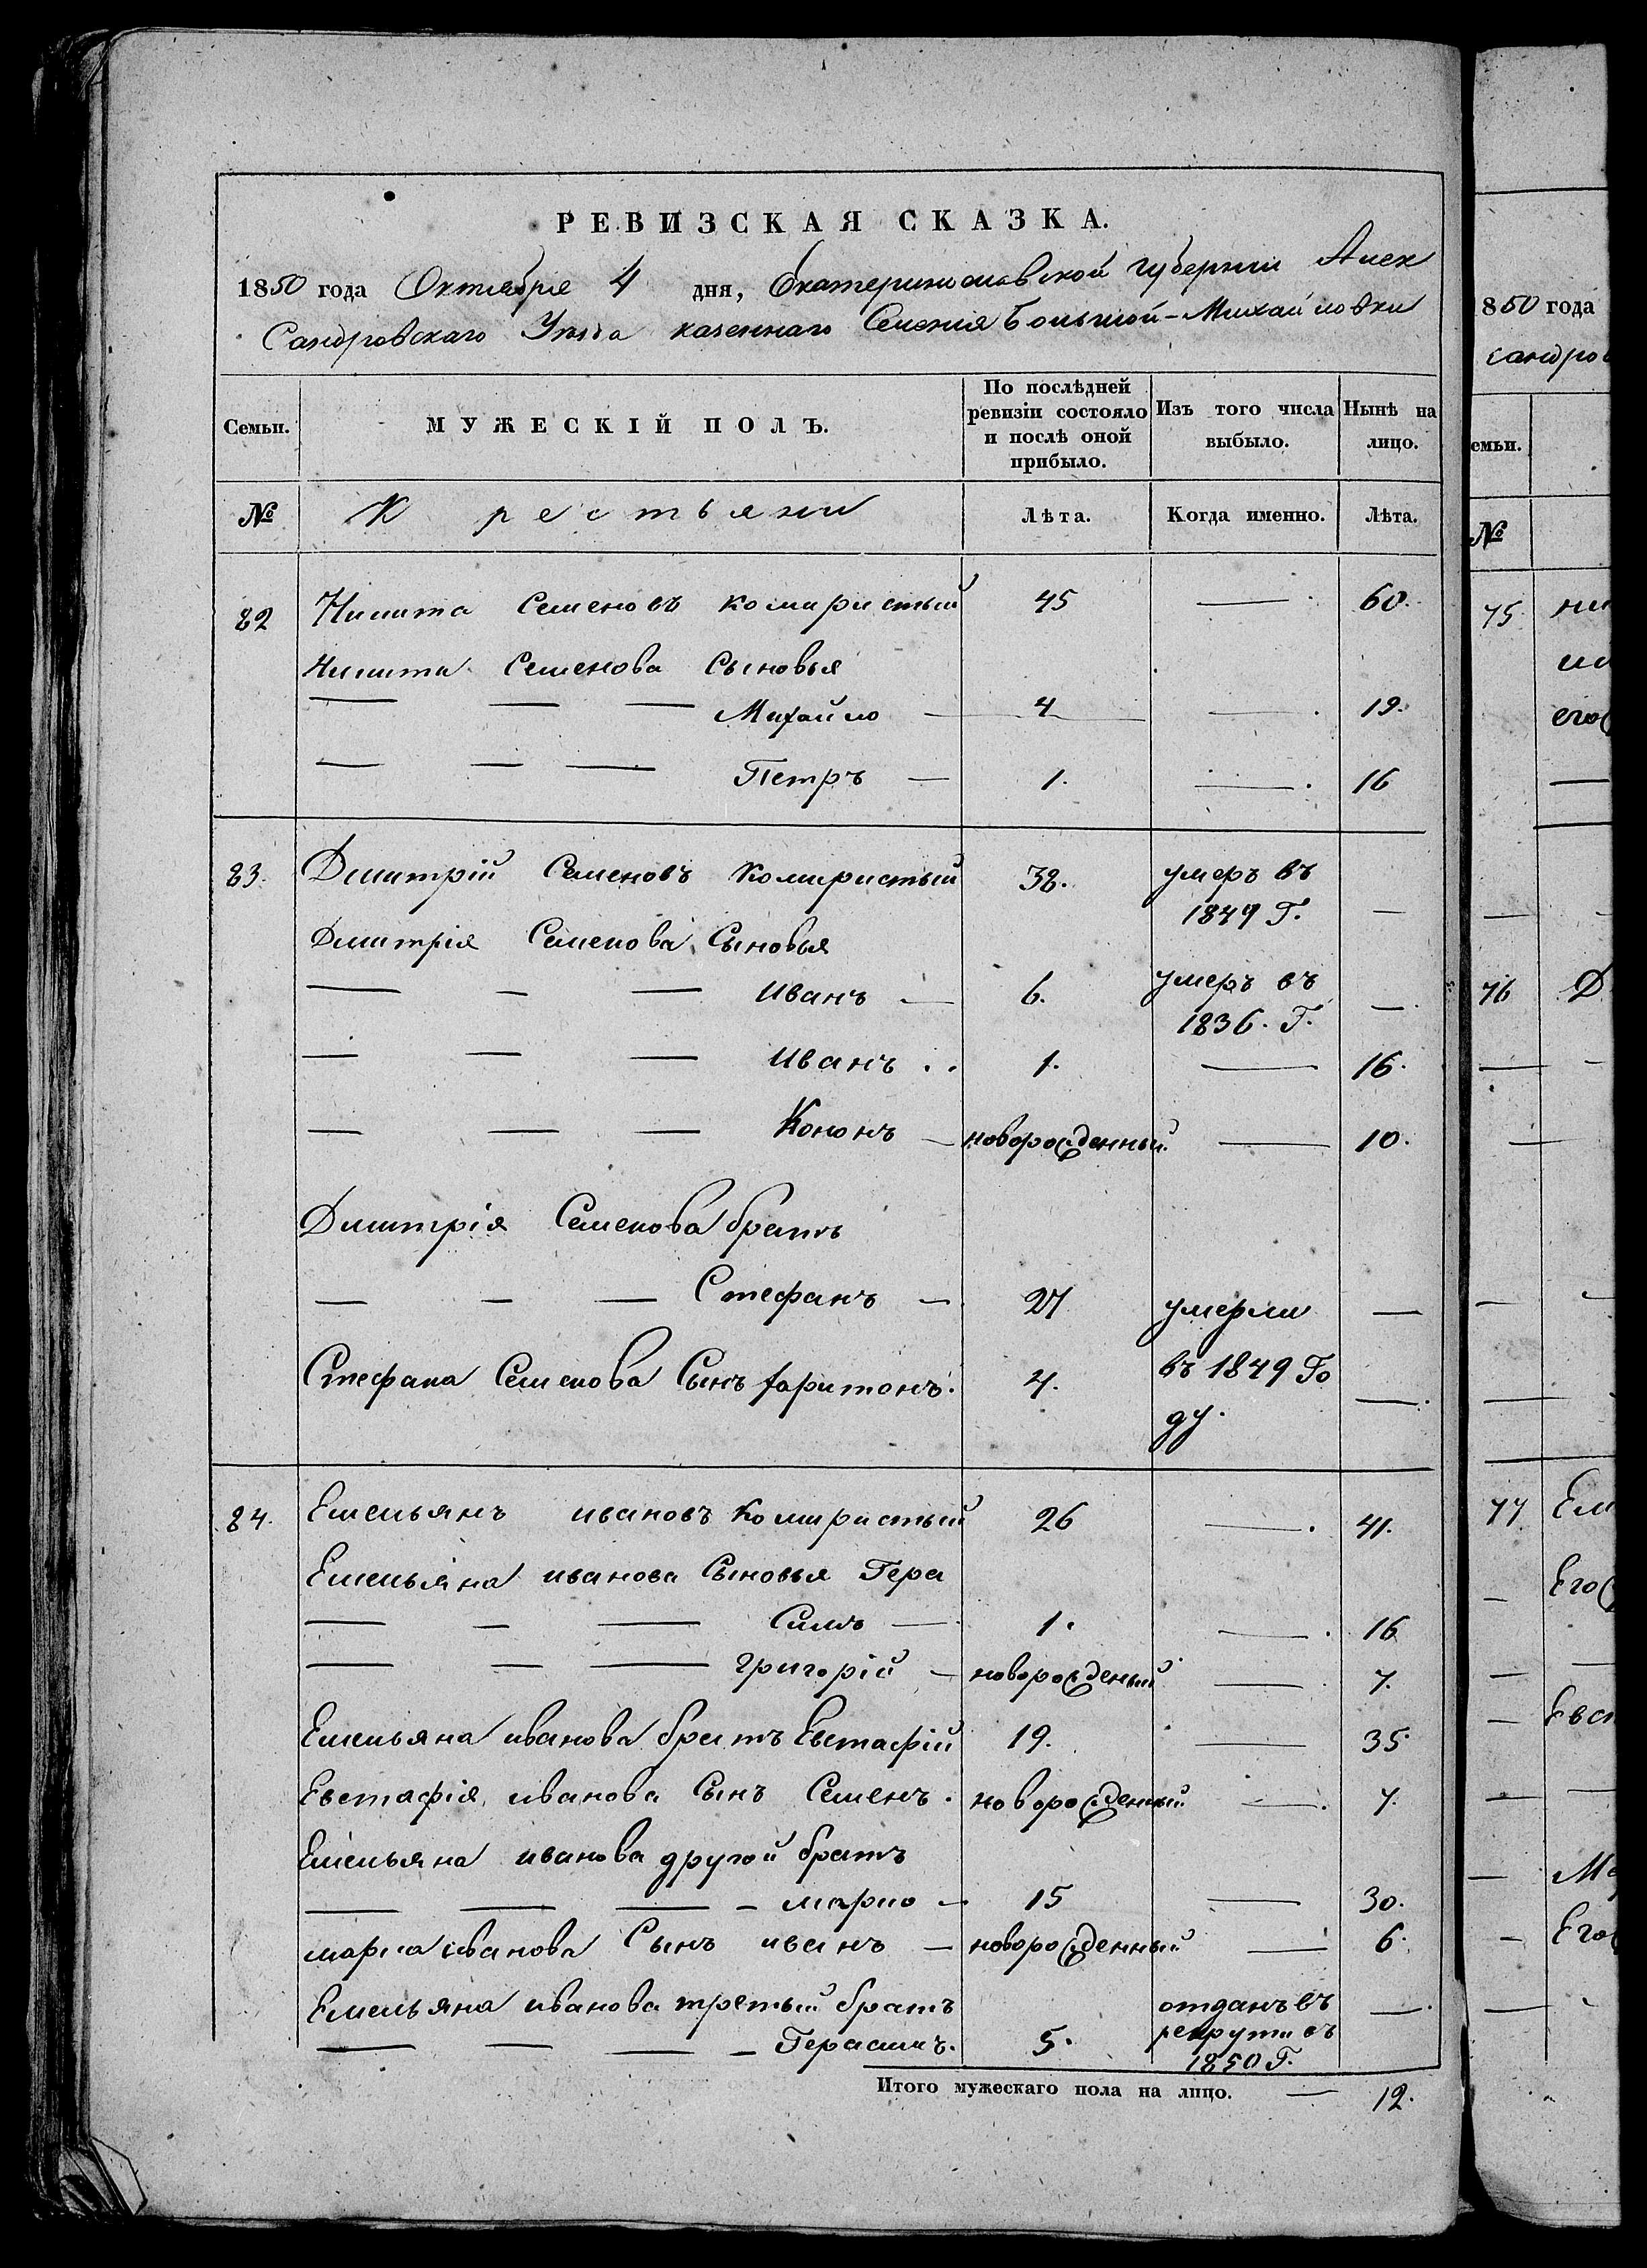 РЕВИЗСКАЯ СКАЗКА.
1850 года Октября 4 дня, Екатеринославской губернии Алек
Сандровскаго Уезда казеннаго Селения Большой-Михайловки
Семьи. МУЖЕСКІЙ ПОЛЪ. По послѣдней ревизіи состояло и послѣ оной прибыло. Изъ того числа выбыло. Нынѣ на лицо.
№ Крестьяни Лѣта. Когда именно. Лѣта.
82 Никита Семеновъ комиристый 45 — 60.
Никита Семенова Сыновья
— — — Михайло — 4 — 19.
— — — Петръ — 1. — 16
83. Дмитрій Семеновъ Комиристый 38. умеръ въ 1849 Г. —
Дмитрія Семенова Сыновья
— — — Иванъ — 6. умеръ въ 1836. Г. —
— — — Иванъ . . 1. — 16.
— — — Кононъ — новорожденный — 10.
Дмитрія Семенова братъ
— — — Стефанъ — 27 умерли —
Стефана Семенова Сынъ харитонъ. 4. въ 1849 Го —
ду.
84. Емельянъ ивановъ Комиристый 26 — 41.
Емельяна иванова Сыновья Гера
— — — Симъ — 1. — 16
— — — григорій — новорожденый — 7.
Емельяна иванова братъ Евстафій 19. — 35
Евстафія иванова Сынъ Семенъ. новорожденный — 7.
Емельяна иванова другой братъ
— — — — марко — 15 — 30.
марка иванова Сынъ иванъ — новорожденный — 6.
Емельяна иванова третьий братъ отданъ въ —
— — — — Герасимъ. 5. рекруты въ
1850 Г.
Итого мужескаго пола на лицо. — 12.
1850 года
сандров
емьи.
№
75.
его
76 Д
77 Ем
Его
Евст
Ма
Его